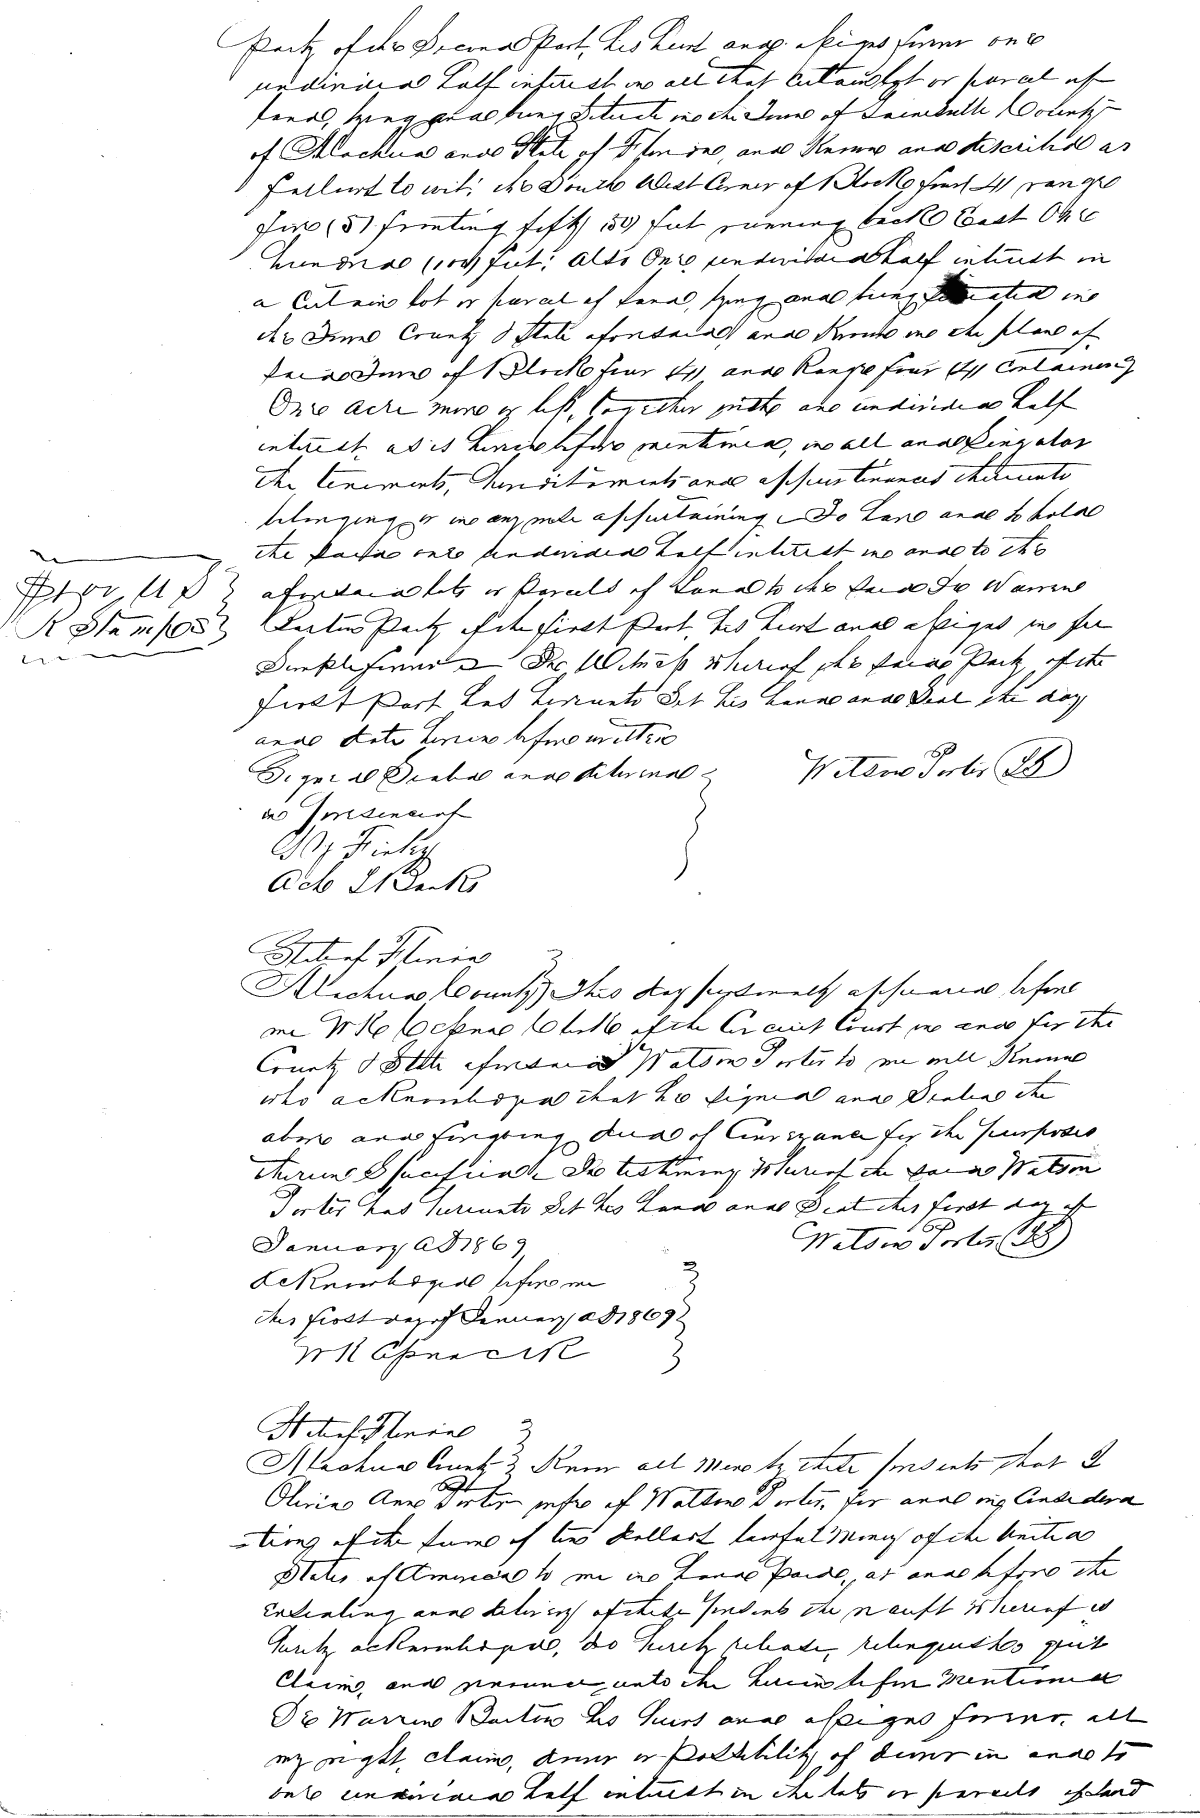 Party of the Second Part, his heirs and assigns forever one
undivided half interest in all that certain lot or parcel of
land, lying and being Situate in the Town of Gainesville County
of Alachua and State of Florida, and Known and described as
follows to wit; the South West Corner of Block four (4) range
five (5) fronting fifty (50) feet running back East One
hundred (100) feet; also One undivided half interest in
a Certain lot or parcel of land, lying and being Situated in
the Town County & State aforesaid, and Known in the plan of
said Town of Block four (4) and Range four (4) containing
One acre more or less, together with one undivided half
interest, as is herein before mentioned, in all and Singular
the tenements, hereditaments and appurtenances thereunto
belonging or in any wise appertaining. To have and to hold
the said one undivided half interest in and to the
aforesaid lots or Parcels of Land to the said De Warren
Party of the First Part, his heirs and assigns in fee
Simple forever. In Witness Whereof the said Party of the
first Part has hereunto Set his hand and Seal the day
and date herein before written
Signed Sealed and delivered
Watson Porter (LS)
in presence of
Finley
Banks
R Stamps
State of Florida
Alachua County } This day personally appeared before
me W K Cessna Clerk of the Circuit Court in and for the
County & State aforesaid Watson Porter to me well Known
who acknowledged that he signed and Sealed the
above and foregoing deed of Conveyance for the purposes
therein Specified. In testimony Whereof the said Watson
Porter has hereunto Set his hand and Seal this first day of
January AD 1869
Watson Porter (LS)
Acknowledged before me
this first day of January AD 1869
W K Cessna Clk
State of Florida
Alachua County } Know all Men by these presents that I
Olivia Ann Porter wife of Watson Porter, for and in Considera
-tion of the sum of ten dollars lawful Money of the United
States of America to me in hand Paid, at and before the
Ensealing and delivery of these presents the receipt Whereof is
hereby acknowledged, do hereby release, relinquish quit
Claim, and renounce unto the herein before Mentioned
De Warren his heirs and assigns forever, all
my right, claim, dower or Possibility of dower in and to
one undivided half interest in the lots or parcels of land